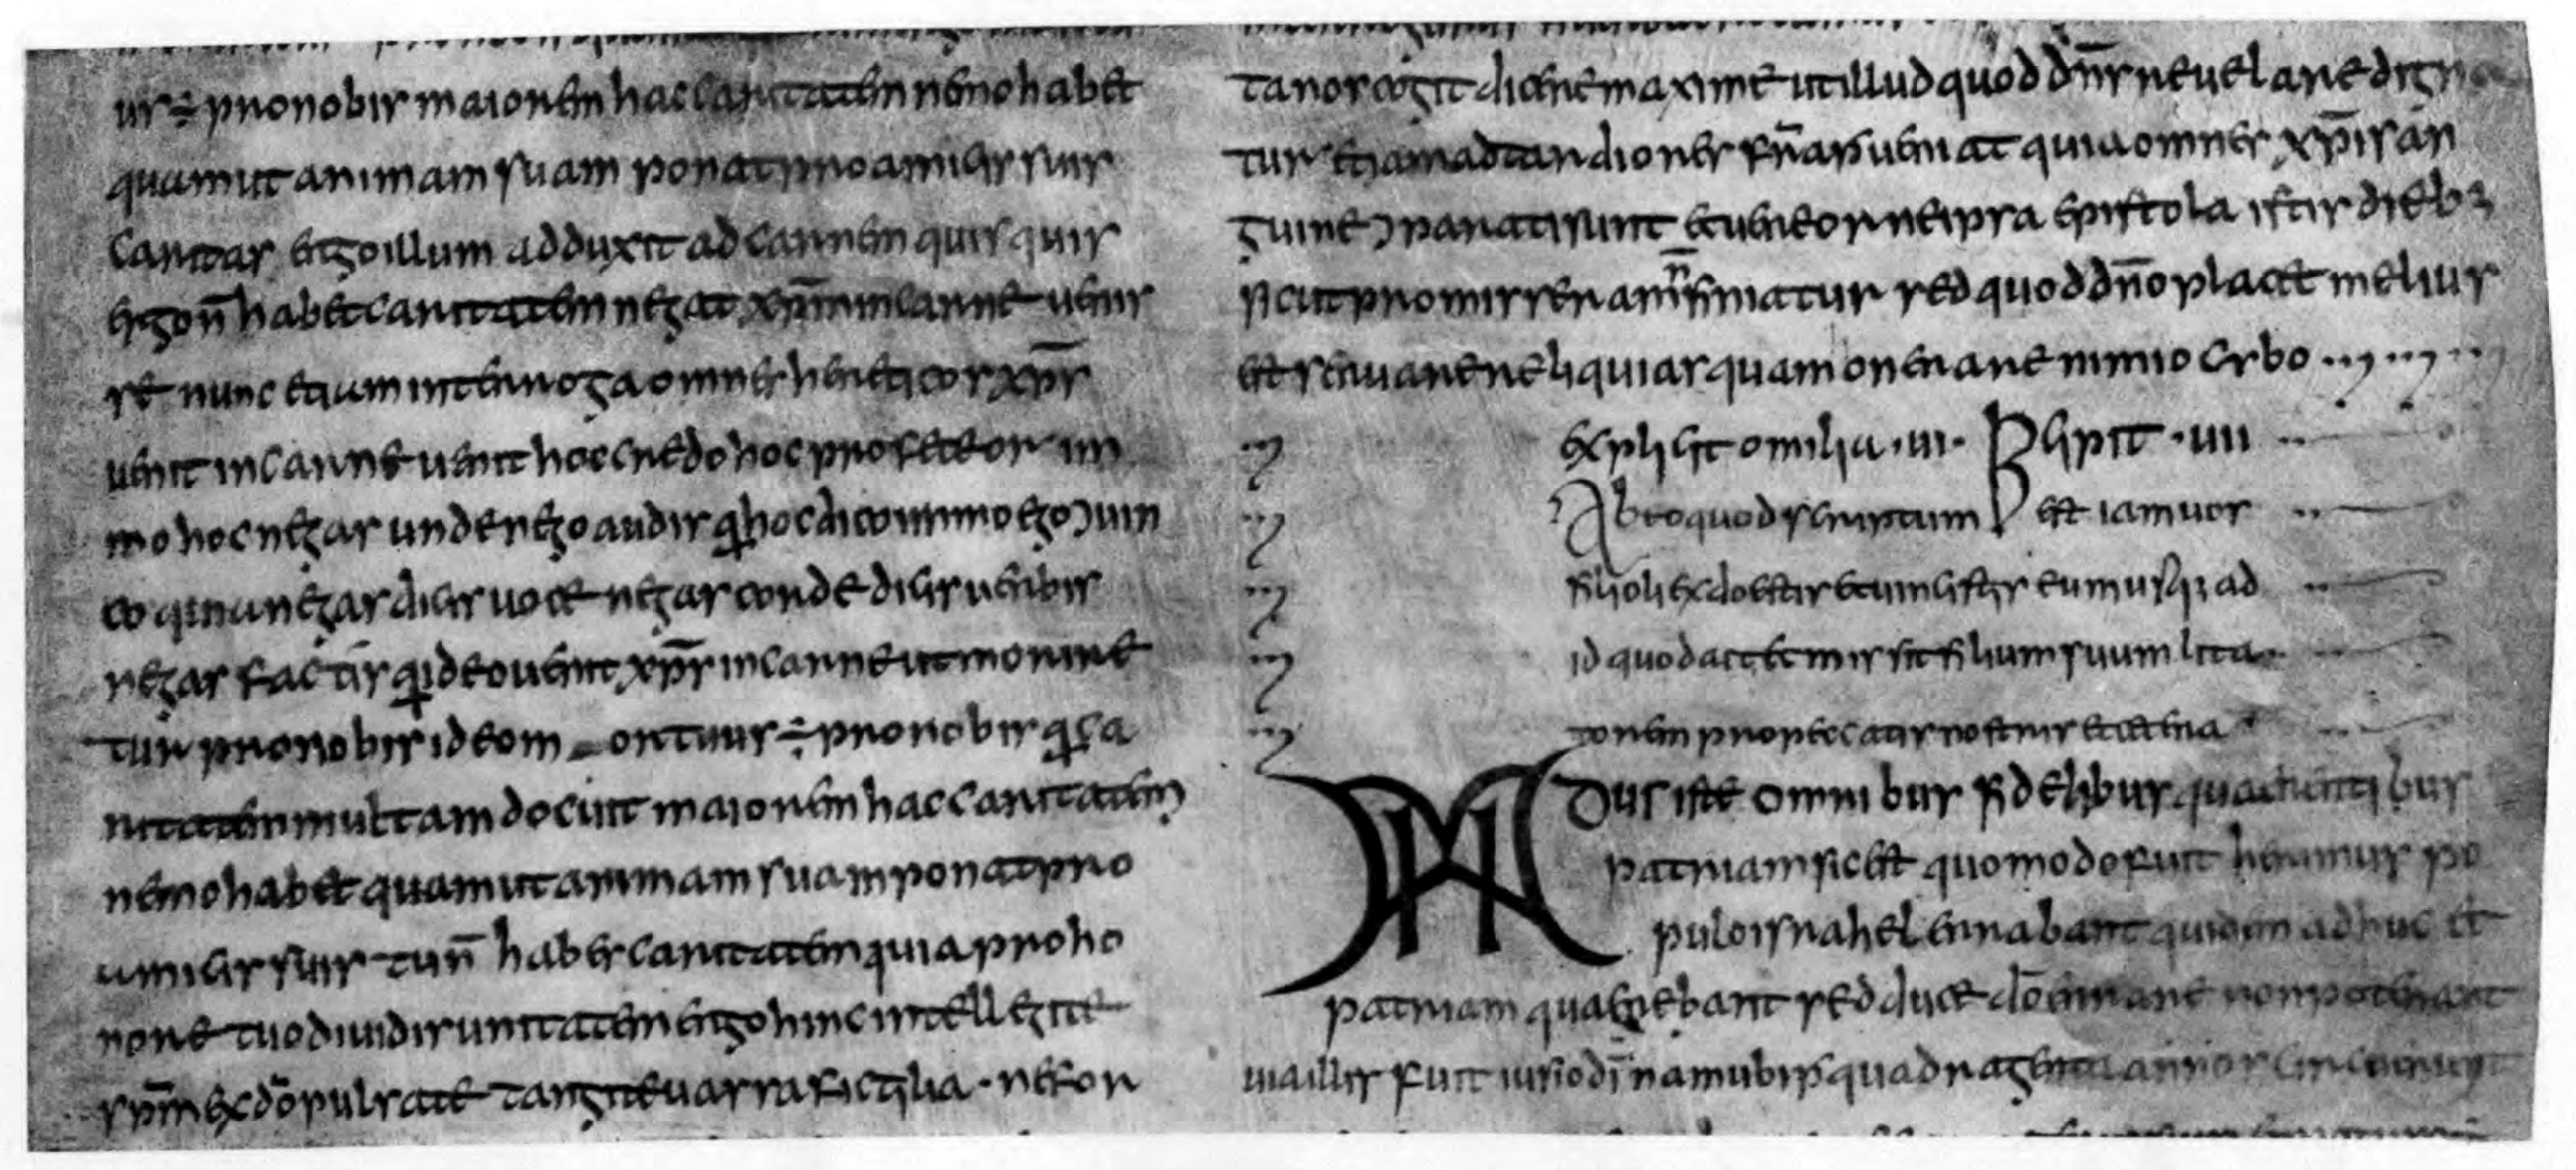 ur÷ pro nobis maiorem hac caritatem nemo habet
quam ut animam suam ponat pro amicis suis
Caritas ergo illum adduxit ad carnem quisquis
ergo n̄ habet caritatem negat xp̄m in carne uenis
se nunc etiam interroga omnes hereticos xp̄s
uenit in carne uenit hoc credo hoc profeteor im
mo hoc negas unde nego audis q hoc dico immo ego ɔuin
co q negas dicis uoce negas corde dicis uerbis
negas factis q ideo uenit xp̄s in carne ut morire
tur pro nobis ideo m ortuus÷ pro nobis q ca
ritatem multam docuit maiorem hac caritatem
nemo habet quam ut animam suam ponat pro
amicis suis tu n̄ habes caritatem quia pro ho
nore tuo diuidis unitatem ergo hinc intellegite
sp̄m ex dō pulsate tangite uassa fictilia · ne for
tanos cogit dicere maxime ut illud quod dn̄s reuelare digna
tur etiam ad tardiores fr̄as pueniat quia omnes xp̄i san
guine ɔparati sunt et uereor ne ipsa epistola istis dieb;
sicut promisseram n̄ finiatur sed quod dn̄o placet melius
est seruare reliquias quam onerare nimio corbo
explicit omilia · ui · Incipit · uii
Ab eo quod scriptum est iam uos
filioli ex do estis et uincistis eum usq; ad
id quod ait et misit filium suum lita
torem pro peccatis nostris et cetera
Mundus iste omnibus fidelibus quaerentibus
patriam sic est quomodo fuit herimus po
pulo israhel errabant quidem adhuc et
patriam quaerebant sed duce dō errare non poterant
uia illis fuit iusio dī nam ubi p quadraginta annos circuierunt